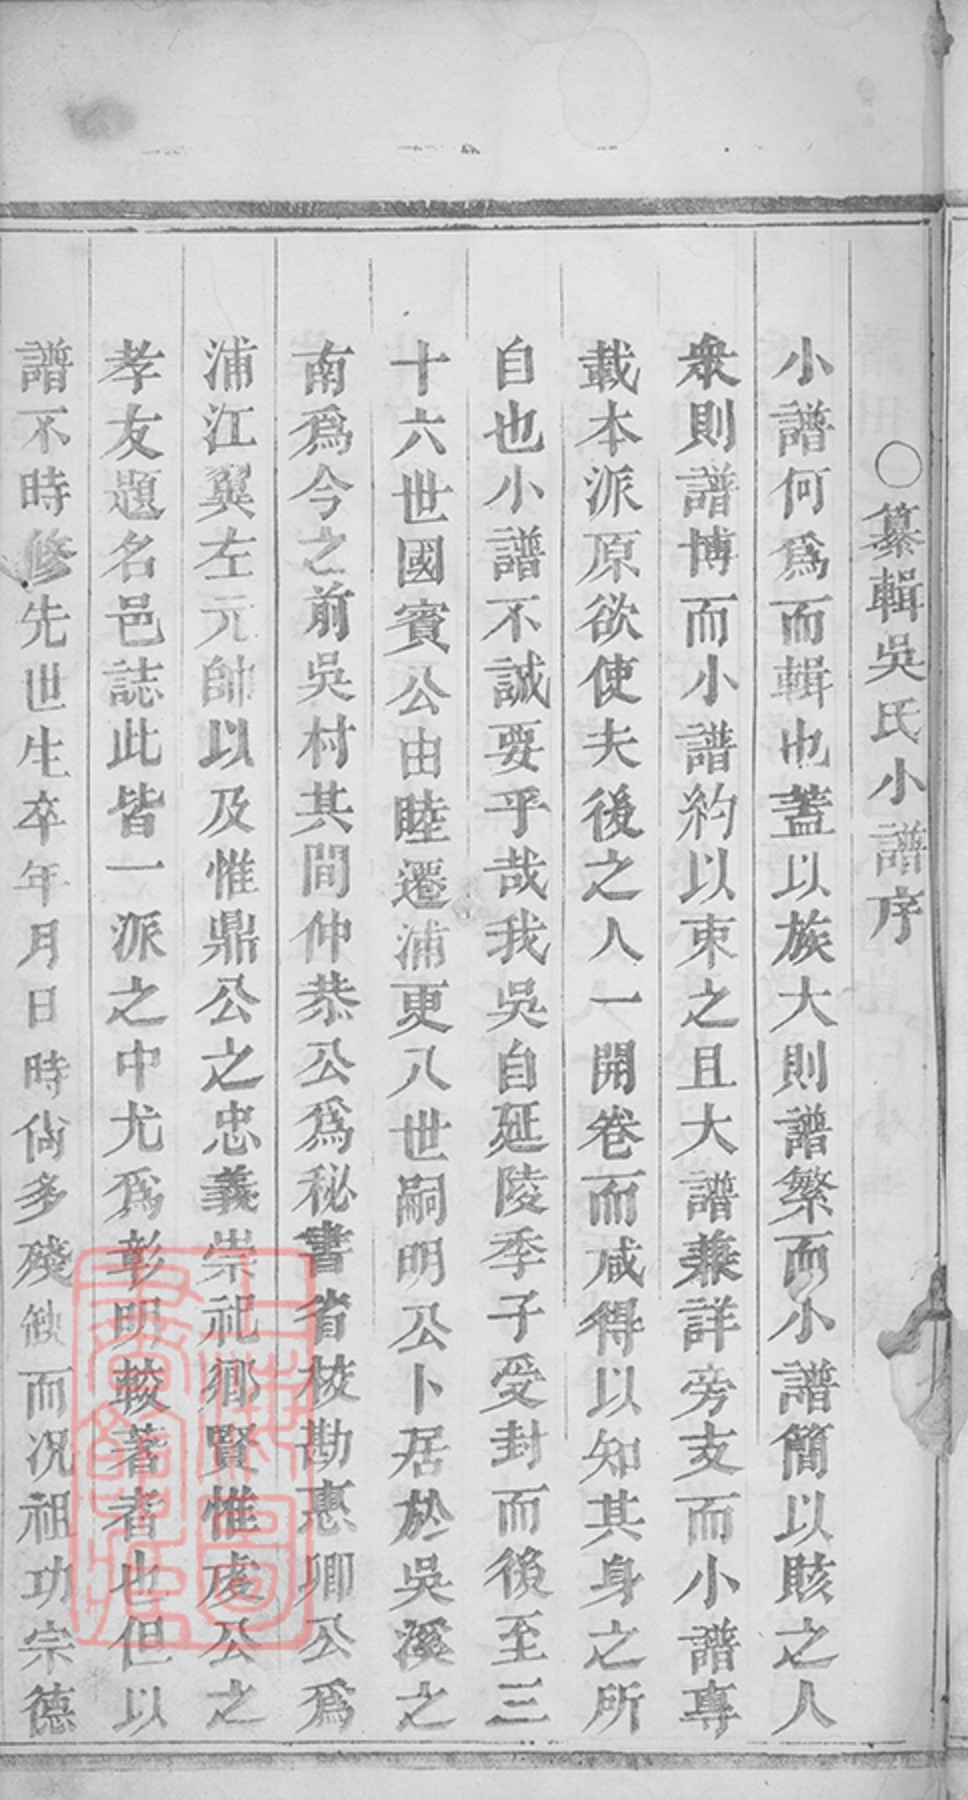 ○纂輯吳氏小譜序
小譜何爲而輯也蓋以族大則譜繁而小譜簡以賅之人
衆則譜博而小譜約以束之且大譜兼詳旁支而小譜專
載本派原欲使夫後之人一開卷而咸得以知其身之所
自也小譜不誠要乎哉我吳自延陵季子受封而後至三
十六世國賓公由睦遷浦更八世嗣明公卜居於吳溪之
南爲今之前吳村其間仲恭公爲秘書省校勘惠卿公爲
浦江翼左元帥以及惟鼎公之忠義崇祀鄉賢惟虔公之
孝友題名邑誌此皆一派之中尤爲彰明較著者也但以
譜不時修先世生卒年月日時尚多殘缺而况祖功宗德